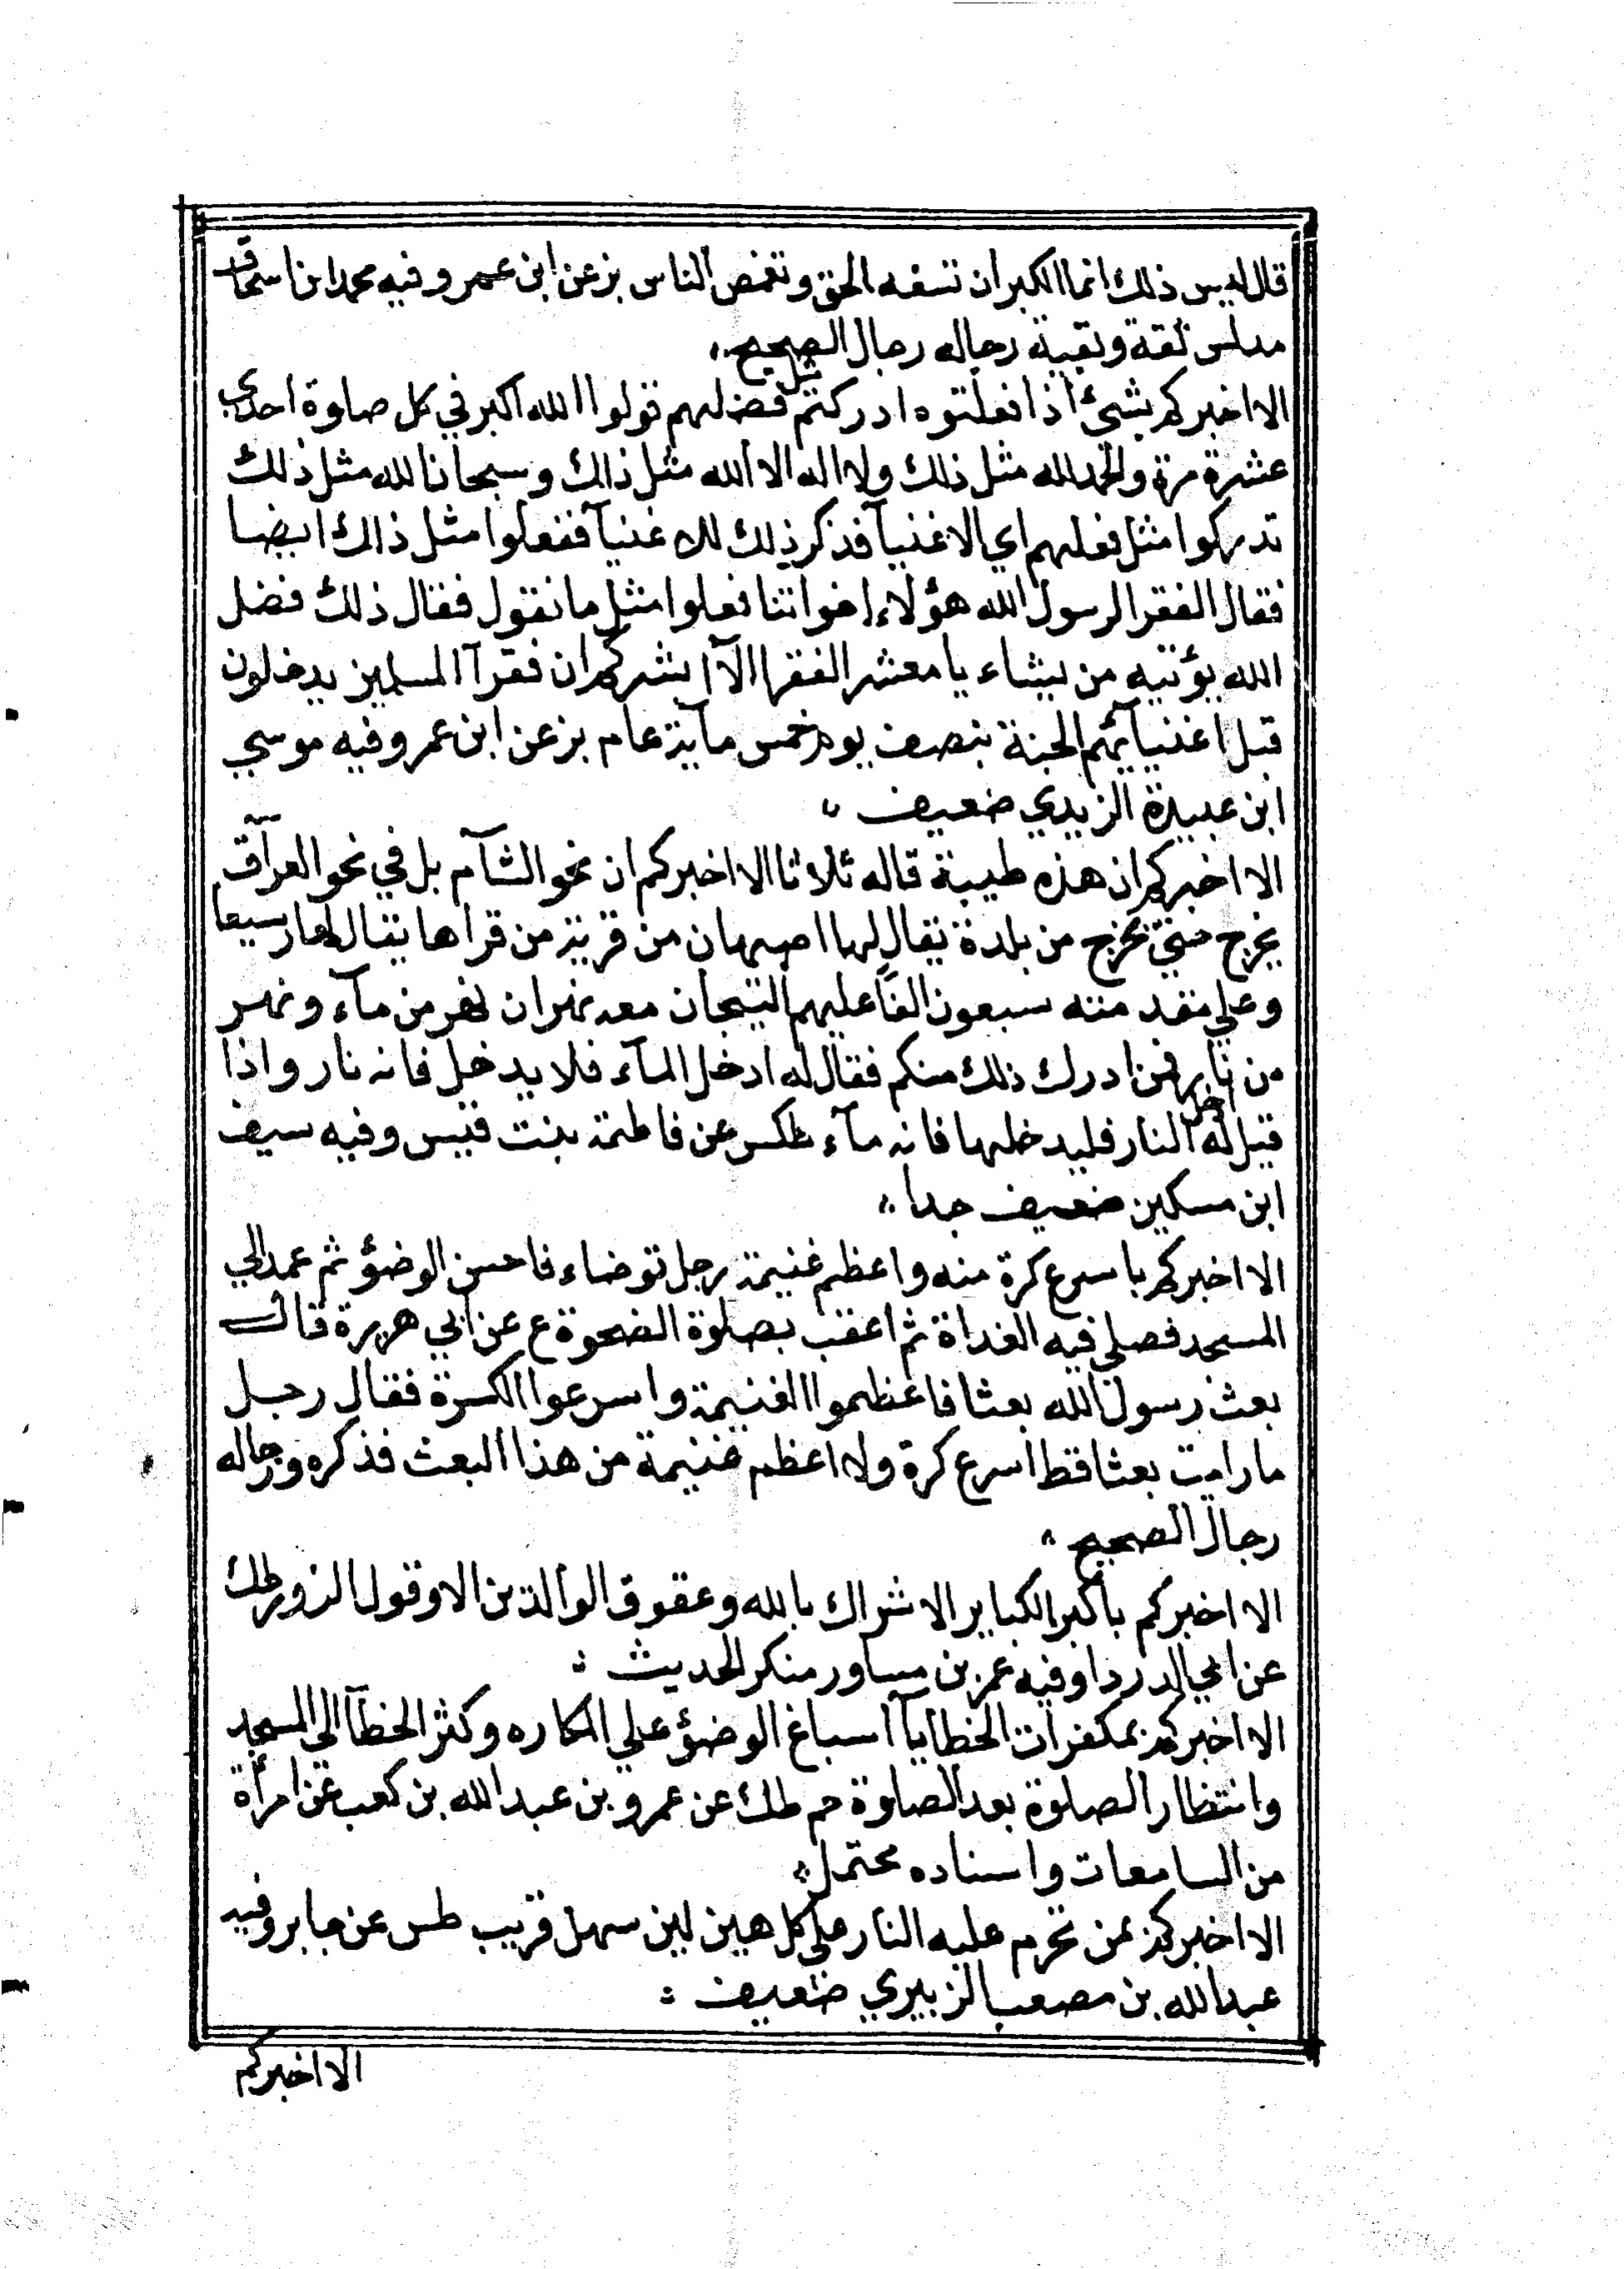 قال ليس ذلك انما الكبر ان تسفه الحق وتغمص الناس بز عن ابن عمر وفيه محمد ابن اسحاق
مدلس ثقة وبقية رجاله رجال الصحيح
الا اخبركم بشئ اذا فعلتوه ادركتم مثل فضلهم تولوا الله اكبر في كل صلوة احدي
عشرة مرة والحمد لله مثل ذلك ولا اله الا الله مثل ذلك وسبحان الله مثل ذلك
تدركوا مثل فعلهم اي الاغنيآ فذكر ذلك للاغنيآ ففعلوا مثل ذلك ايضا
فقال الفقرا لرسول الله هؤلاء اخواننا فعلوا مثل ما نقول فقال ذلك فضل
الله يؤتيه من يشاء يا معشر الفقرا الآ ابشركم ان فقرآ المسلمين يدخلون
قبل اغنيآئهم الجنة بنصف يوم خمس مآية عام بز عن ابن عمر وفيه موسي
ابن عبيدة الزبيدي ضعيف
الا اخبركم ان هذه طيبة قاله ثلاثا الا اخبركم ان نحو الشآم بل في نحو العرآق
يخرج حتي يخرج من بلدة يقال لها اصبهان من قرية من قراها يقال لها رسيفا
وعلي مقدمته سبعون الفًا عليهم التيجان معه نهران نهر من مآء ونهر
من نار فمن ادرك ذلك منكم فقال له ادخل المآء فلا يدخل فانه نار واذا
قيل له ادخل النار فليدخلها فانه مآء طكس عن فاطمة بنت قيس وفيه سيف
ابن مسكين ضعيف جدا
الا اخبركم باسرع كرة منه واعظم غنيمة رجل توضاء فاحسن الوضؤ ثم عمد الي
المسجد فصلي فيه الغداة ثم اعقب بصلوة الضحوة ع عن ابي هريرة قال
بعث رسول الله بعثا فاعظموا الغنيمة واسرعوا الكرة فقال رجل
ما رايت بعثا قط اسرع كرة ولا اعظم غنيمة من هذا البعث فذكره ورجاله
رجال الصحيح
الا اخبركم باكبر الكباير الاشراك بالله وعقوق الوالدين الا وقول الزور طك
عن ابي الدردا وفيه عمر بن مساور منكر الحديث
الا اخبركم بمكفرات الخطايآ اسباغ الوضؤ علي المكاره وكثر الخطآ الي المسجد
وانتظار الصلوة بعد الصلوة حم طك عن عمرو بن عبد الله بن كعب عن امرأة
من السامعات واسناده محتمل
الا اخبركم بمن تحرم عليه النار علي كل هين لين سهل قريب طس عن جابر وفيه
عبد الله بن مصعب الزبيري ضعيف
الا اخبركم